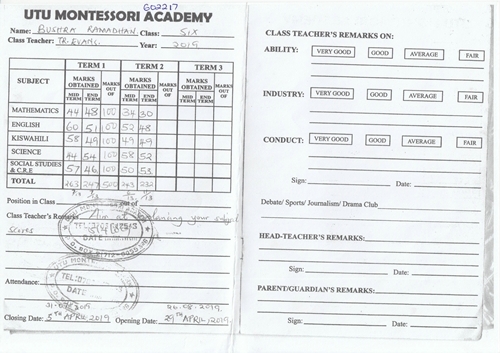 G02217
UTU MONTESSORI ACADEMY
Name: BUSHRA RAMADHAN Class: SIX
Class Teacher: TR. EVANS. Year: 2019
SUBJECT TERM 1 TERM 2 TERM 3
MARKS OBTAINED MARKS OUT OF MARKS OBTAINED MARKS OUT OF MARKS OBTAINED MARKS OUT OF
MID TERM END TERM MID TERM END TERM MID TERM END TERM
MATHEMATICS 44 48 100 34 30
ENGLISH 60 51 100 52 48
KISWAHILI 58 49 100 49 49
SCIENCE 44 54 100 58 52
SOCIAL STUDIES & C.R.E 57 46 100 50 53
TOTAL 263 247 500 243 232
Position in Class out of
Class Teacher's Remarks Aim at balancing your subject
scores
UTU MONTE
TEL:
DATE
Attendance:
06-08-2019
Closing Date: 5TH APRIL 2019 Opening Date: 29TH APRIL, 2019
CLASS TEACHER'S REMARKS ON:
ABILITY: VERY GOOD GOOD AVERAGE FAIR
INDUSTRY: VERY GOOD GOOD AVERAGE FAIR
CONDUCT: VERY GOOD GOOD AVERAGE FAIR
Sign: Date:
Debate/ Sports/ Journalism/ Drama Club
HEAD-TEACHER'S REMARKS:
Sign: Date:
PARENT/GUARDIAN'S REMARKS:
Sign: Date: